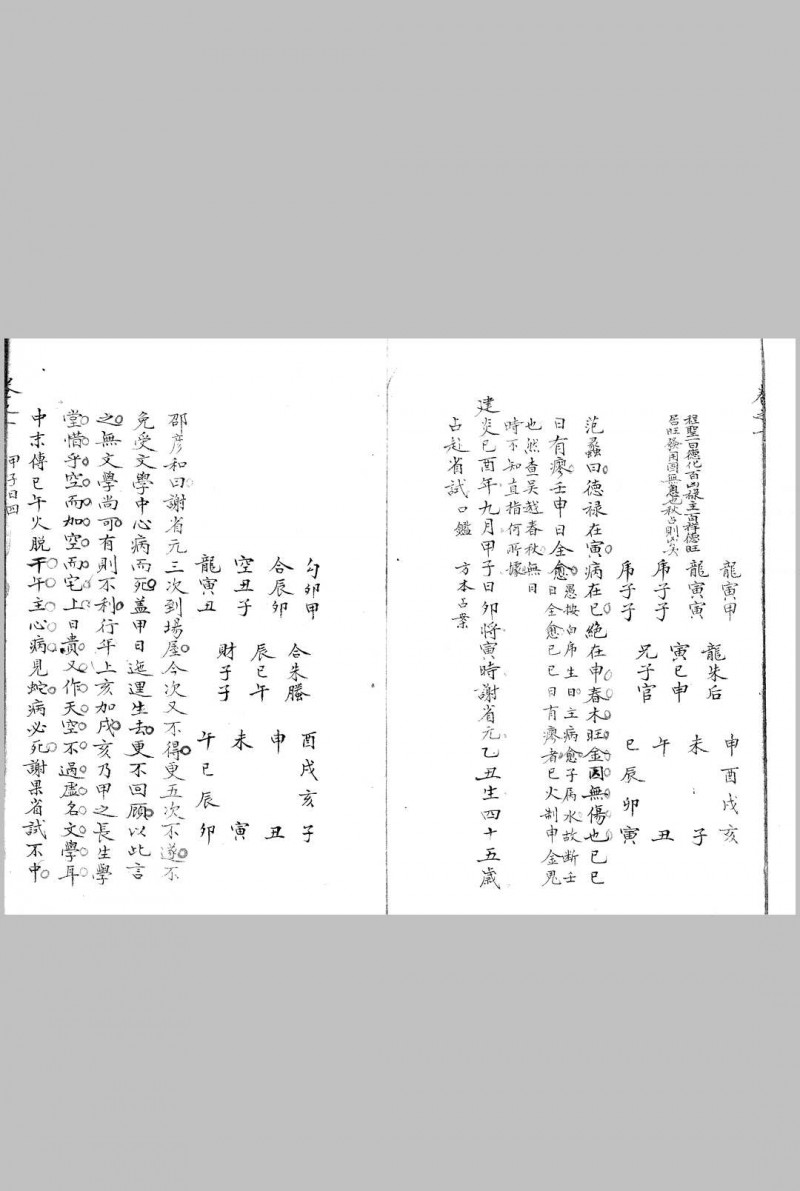 卷之一
程聖一曰德化百凶祿主百祥德旺
若旺發用固無患也秋占則凶矣
龍寅甲
龍寅寅
虎子子
虎子子
龍朱后
寅巳申
兄子官
申酉戌亥
未 子
午 丑
巳辰卯寅
范蠡曰德祿在寅病在巳絕在申春木旺金囚無傷也巳巳
日有瘳壬申日全愈愚按白虎生日主病愈子屬水故斷壬
日全愈巳巳日有瘳者巳火制申金鬼
也然查吳越春秋無目
時不知直指何所據
建炎己酉年九月甲子日卯將寅時謝省元乙丑生四十五歲
占赴省試口鑑 方本占案
勾卯甲
合辰卯
空丑子
龍寅丑
合朱螣
辰巳午
財子子
酉戌亥子
申 丑
未 寅
午巳辰卯
邵彥和曰謝省元三次到場屋今次又不得更五次不遂不
免受文學中心病而死蓋甲日迤邐生去更不回顧以此言
之無文學尚可有則不利行年上亥加戌亥乃甲之長生學
堂惜乎空而加空而宅上日貴又作天空不過虛名文學耳
中末傳巳午火脫干午主心病見蛇病必死謝果省試不中
卷之一 甲子日四